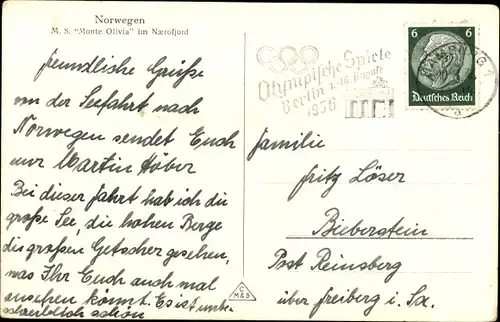 Norwegen
M. S. "Monte Olivia" im Nærofjord
freundliche Grüße
von der Seefahrt nach
Norwegen sendet Euch
nur Martin Höber
Bei dieser Fahrt hab ich die
große See, die hohen Berge
die großen Getscher gesehen,
was Ihr Euch auch mal
ansehen könnt. Es ist unbe-
schreiblich schön
Olympische Spiele
Berlin 1.-16. August
1936
6 6
Deutsches Reich
HAMBURG 1
Familie
Fritz Löser
Bieberstein
Post Reinsberg
über Freiberg i. Sa.
C
M&S